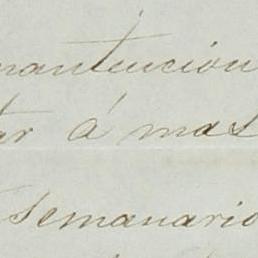 mantencion
ar á mas
semanario